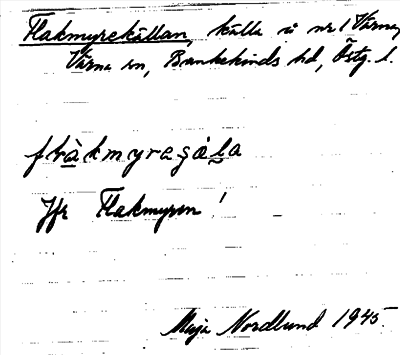 Flakmyrekällan, källa å nr 1 Värna,
Värna sn, Bankekinds hd, Östg. l.
Jfr Flakmyren!
Maja Nordlund 1945.